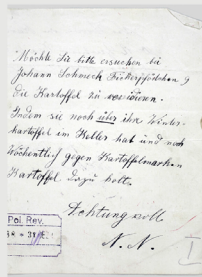 Möchte Sie bitte ersuchen bei
Johann Schmeck 9
die Kartoffel zu revidieren.
Indem sie noch über ihre Winter-
kartoffel im Keller hat und noch
Wöchentlich gegen Kartoffelmarken
Kartoffel dazu holt.
Achtungsvoll
N. N.
Pol. Rev.